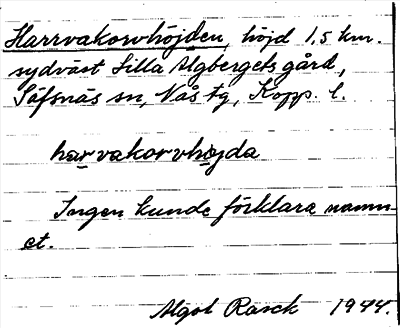 Harrvakorvhöjden, höjd 1,5 km.
sydväst Lilla Älgbergets gård,
Säfsnäs sn, Nås tg, Kopp. l.
harvakorvhøjda
Ingen kunde förklara namn-
et.
Algot Rasck 1944.